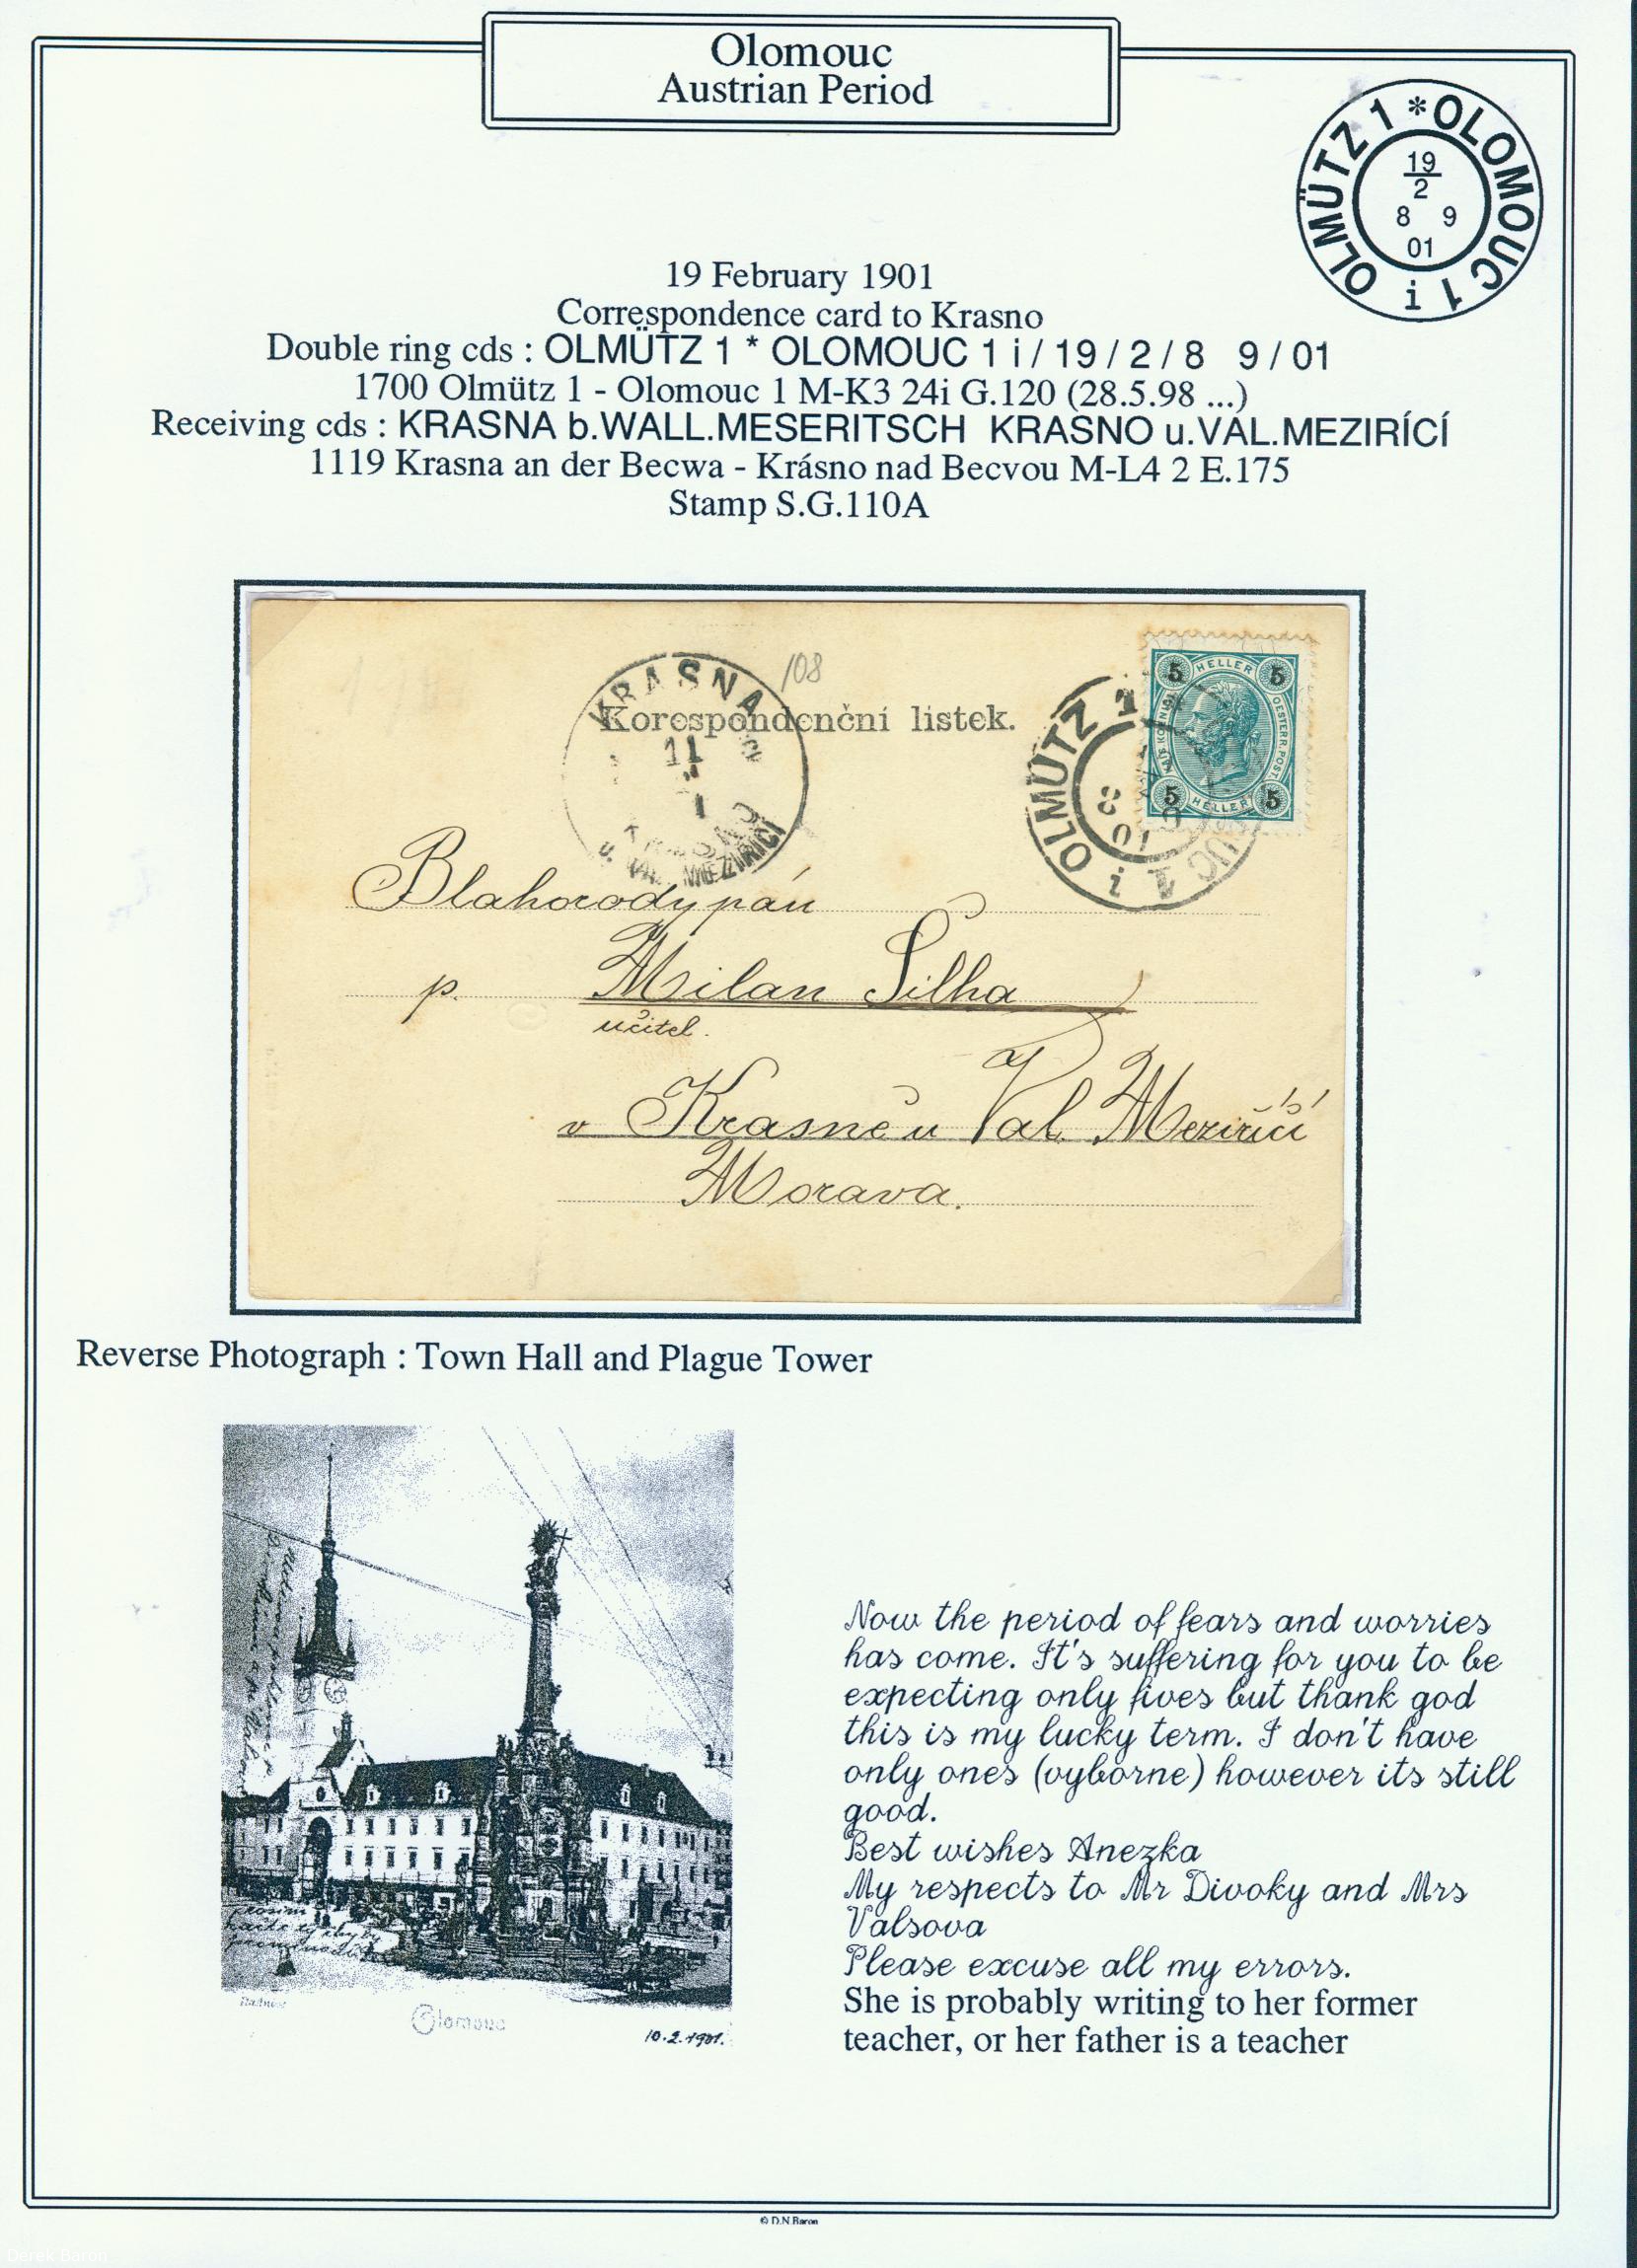 Olomouc
Austrian Period
OLMÜTZ 1 * OLOMOUC 1 i
19
2
8 9
01
19 February 1901
Correspondence card to Krasno
Double ring cds : OLMÜTZ 1 * OLOMOUC 1 i / 19 / 2 / 8 9 / 01
1700 Olmütz 1 - Olomouc 1 M-K3 24i G.120 (28.5.98 ...)
Receiving cds : KRASNA b.WALL.MESERITSCH KRASNO u.VAL.MEZIRÍCÍ
1119 Krasna an der Becwa - Krásno nad Becvou M-L4 2 E.175
Stamp S.G.110A
108
KRASNA
11
u. VAL. MEZIRICI
Korespondenční listek.
OLMÜTZ 1
8
01
i 1
5 HELLER 5
OESTERR. POST.
5 HELLER 5
Blahorodý pán
p. Milan Šilha
učitel.
v Krásně u Val. Meziříčí
Morava.
Reverse Photograph : Town Hall and Plague Tower
prosím
Radnice
Olomouc
10.2.1901.
Now the period of fears and worries
has come. It's suffering for you to be
expecting only fives but thank god
this is my lucky term. I don't have
only ones (vyborne) however its still
good.
Best wishes Anezka
My respects to Mr Divoky and Mrs
Valsova
Please excuse all my errors.
She is probably writing to her former
teacher, or her father is a teacher
© D.N.Baron
Derek Baron